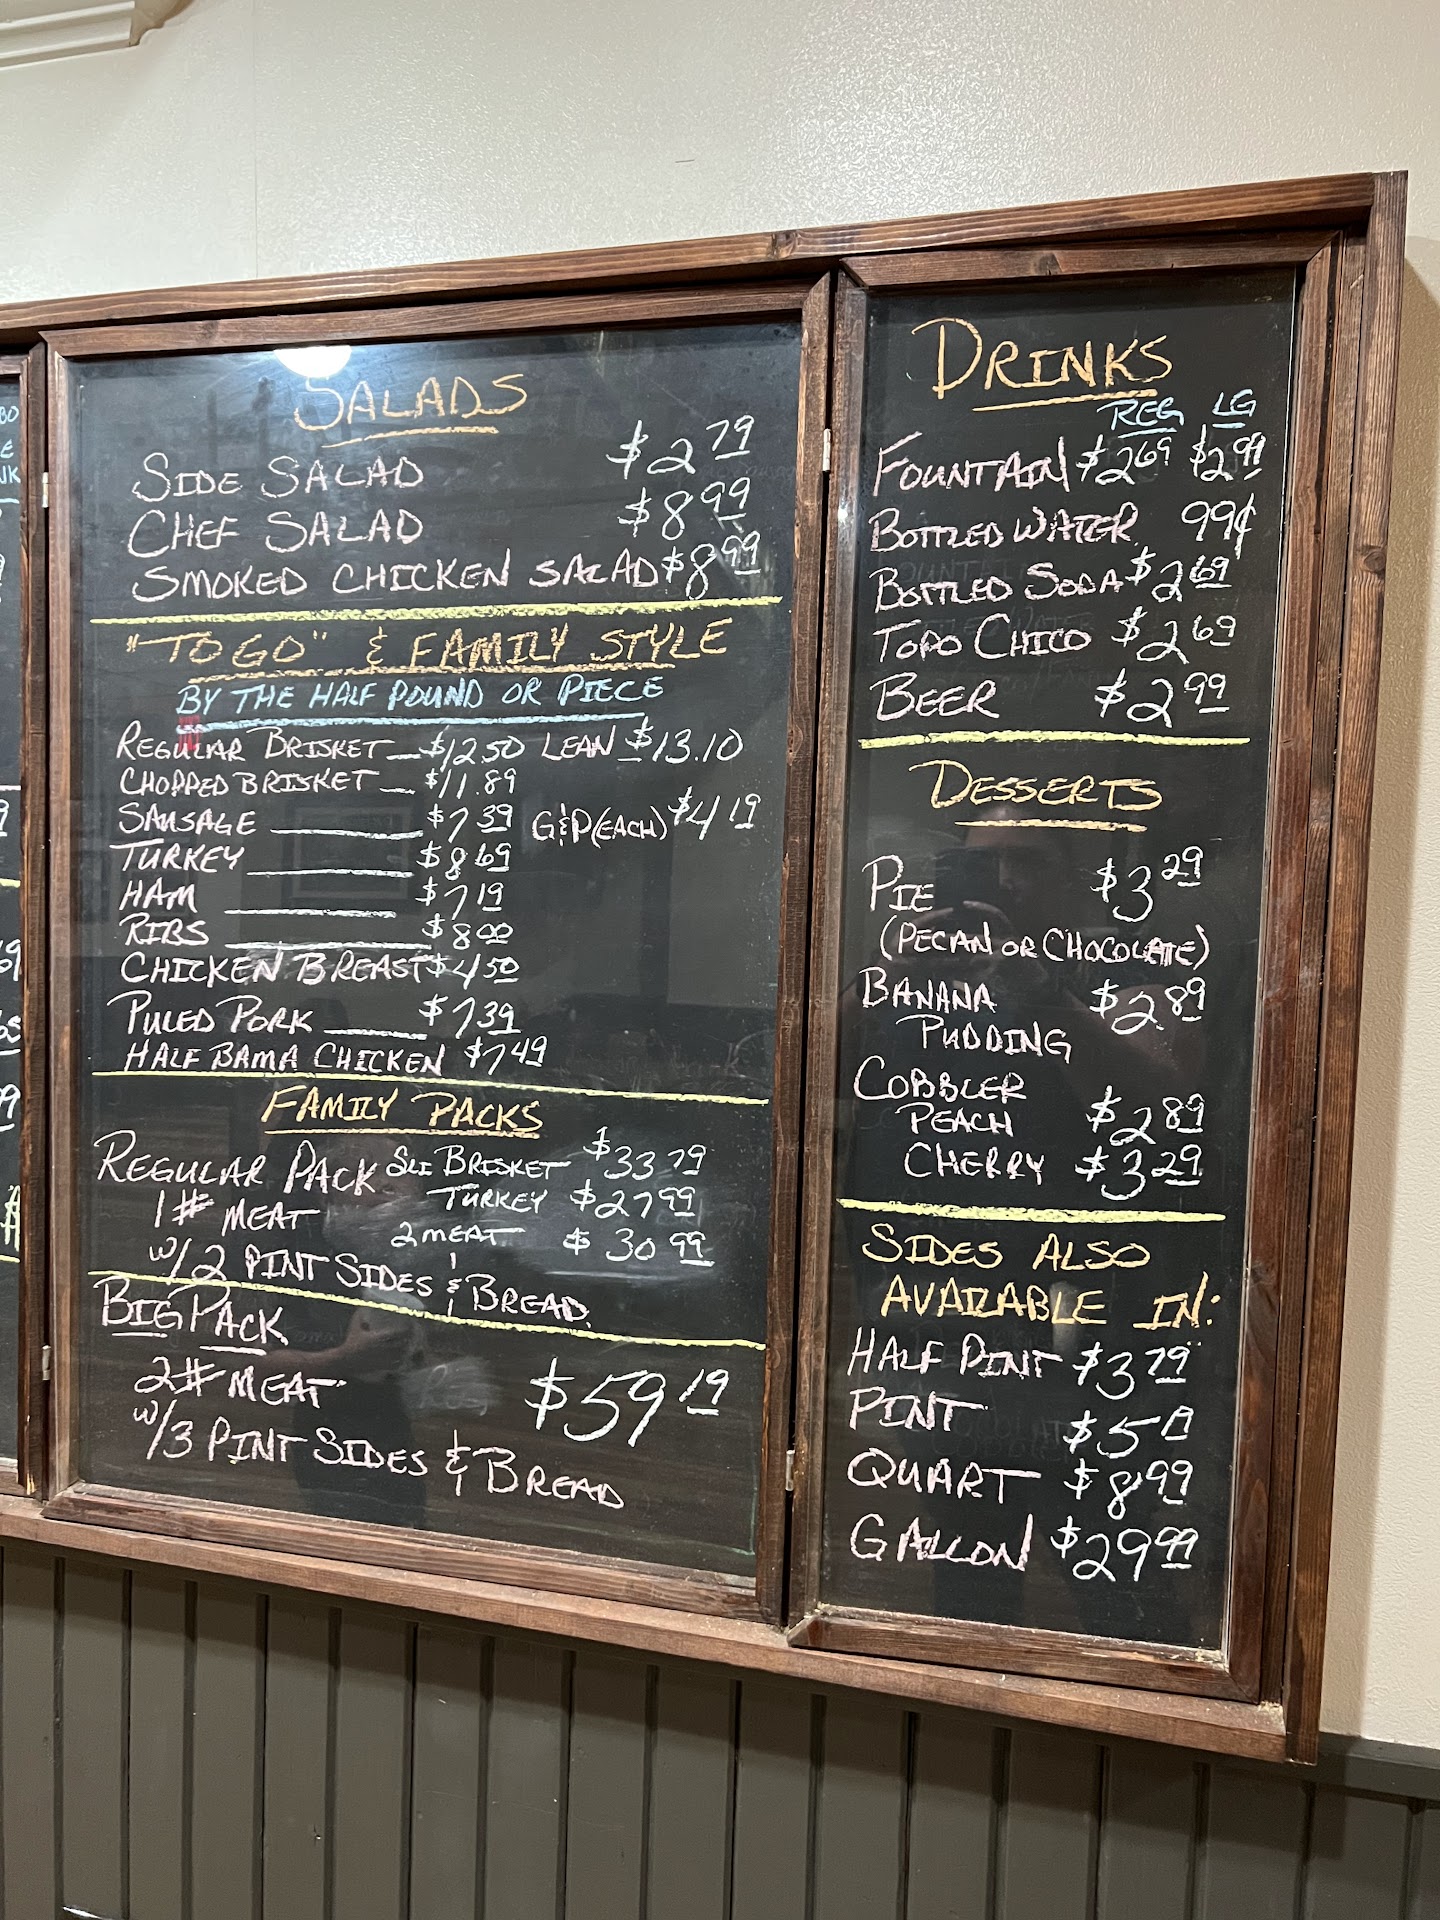 SALADS
SIDE SALAD $2.79
CHEF SALAD $8.99
SMOKED CHICKEN SALAD $8.99
"TO GO" & FAMILY STYLE
BY THE HALF POUND OR PIECE
REGULAR BRISKET $12.50 LEAN $13.10
CHOPPED BRISKET $11.89
SAUSAGE $7.39 G&P(EACH) $4.19
TURKEY $8.69
HAM $7.19
RIBS $8.00
CHICKEN BREAST $4.50
PULED PORK $7.39
HALF BAMA CHICKEN $7.49
FAMILY PACKS
REGULAR PACK SLI BRISKET $33.79
TURKEY $27.99
1# MEAT
2 MEAT $30.99
W/2 PINT SIDES & BREAD.
BIG PACK
2# MEAT $59.19
W/3 PINT SIDES & BREAD
DRINKS
REG LG
FOUNTAIN $2.69 $2.99
BOTTLED WATER 99¢
BOTTLED SODA $2.69
TOPO CHICO $2.69
BEER $2.99
DESSERTS
PIE $3.29
(PECAN OR CHOCOLATE)
BANANA $2.89
PUDDING
COBBLER
PEACH $2.89
CHERRY $3.29
SIDES ALSO
AVAILABLE IN:
HALF PINT $3.79
PINT
QUART $8.99
GALLON $29.99